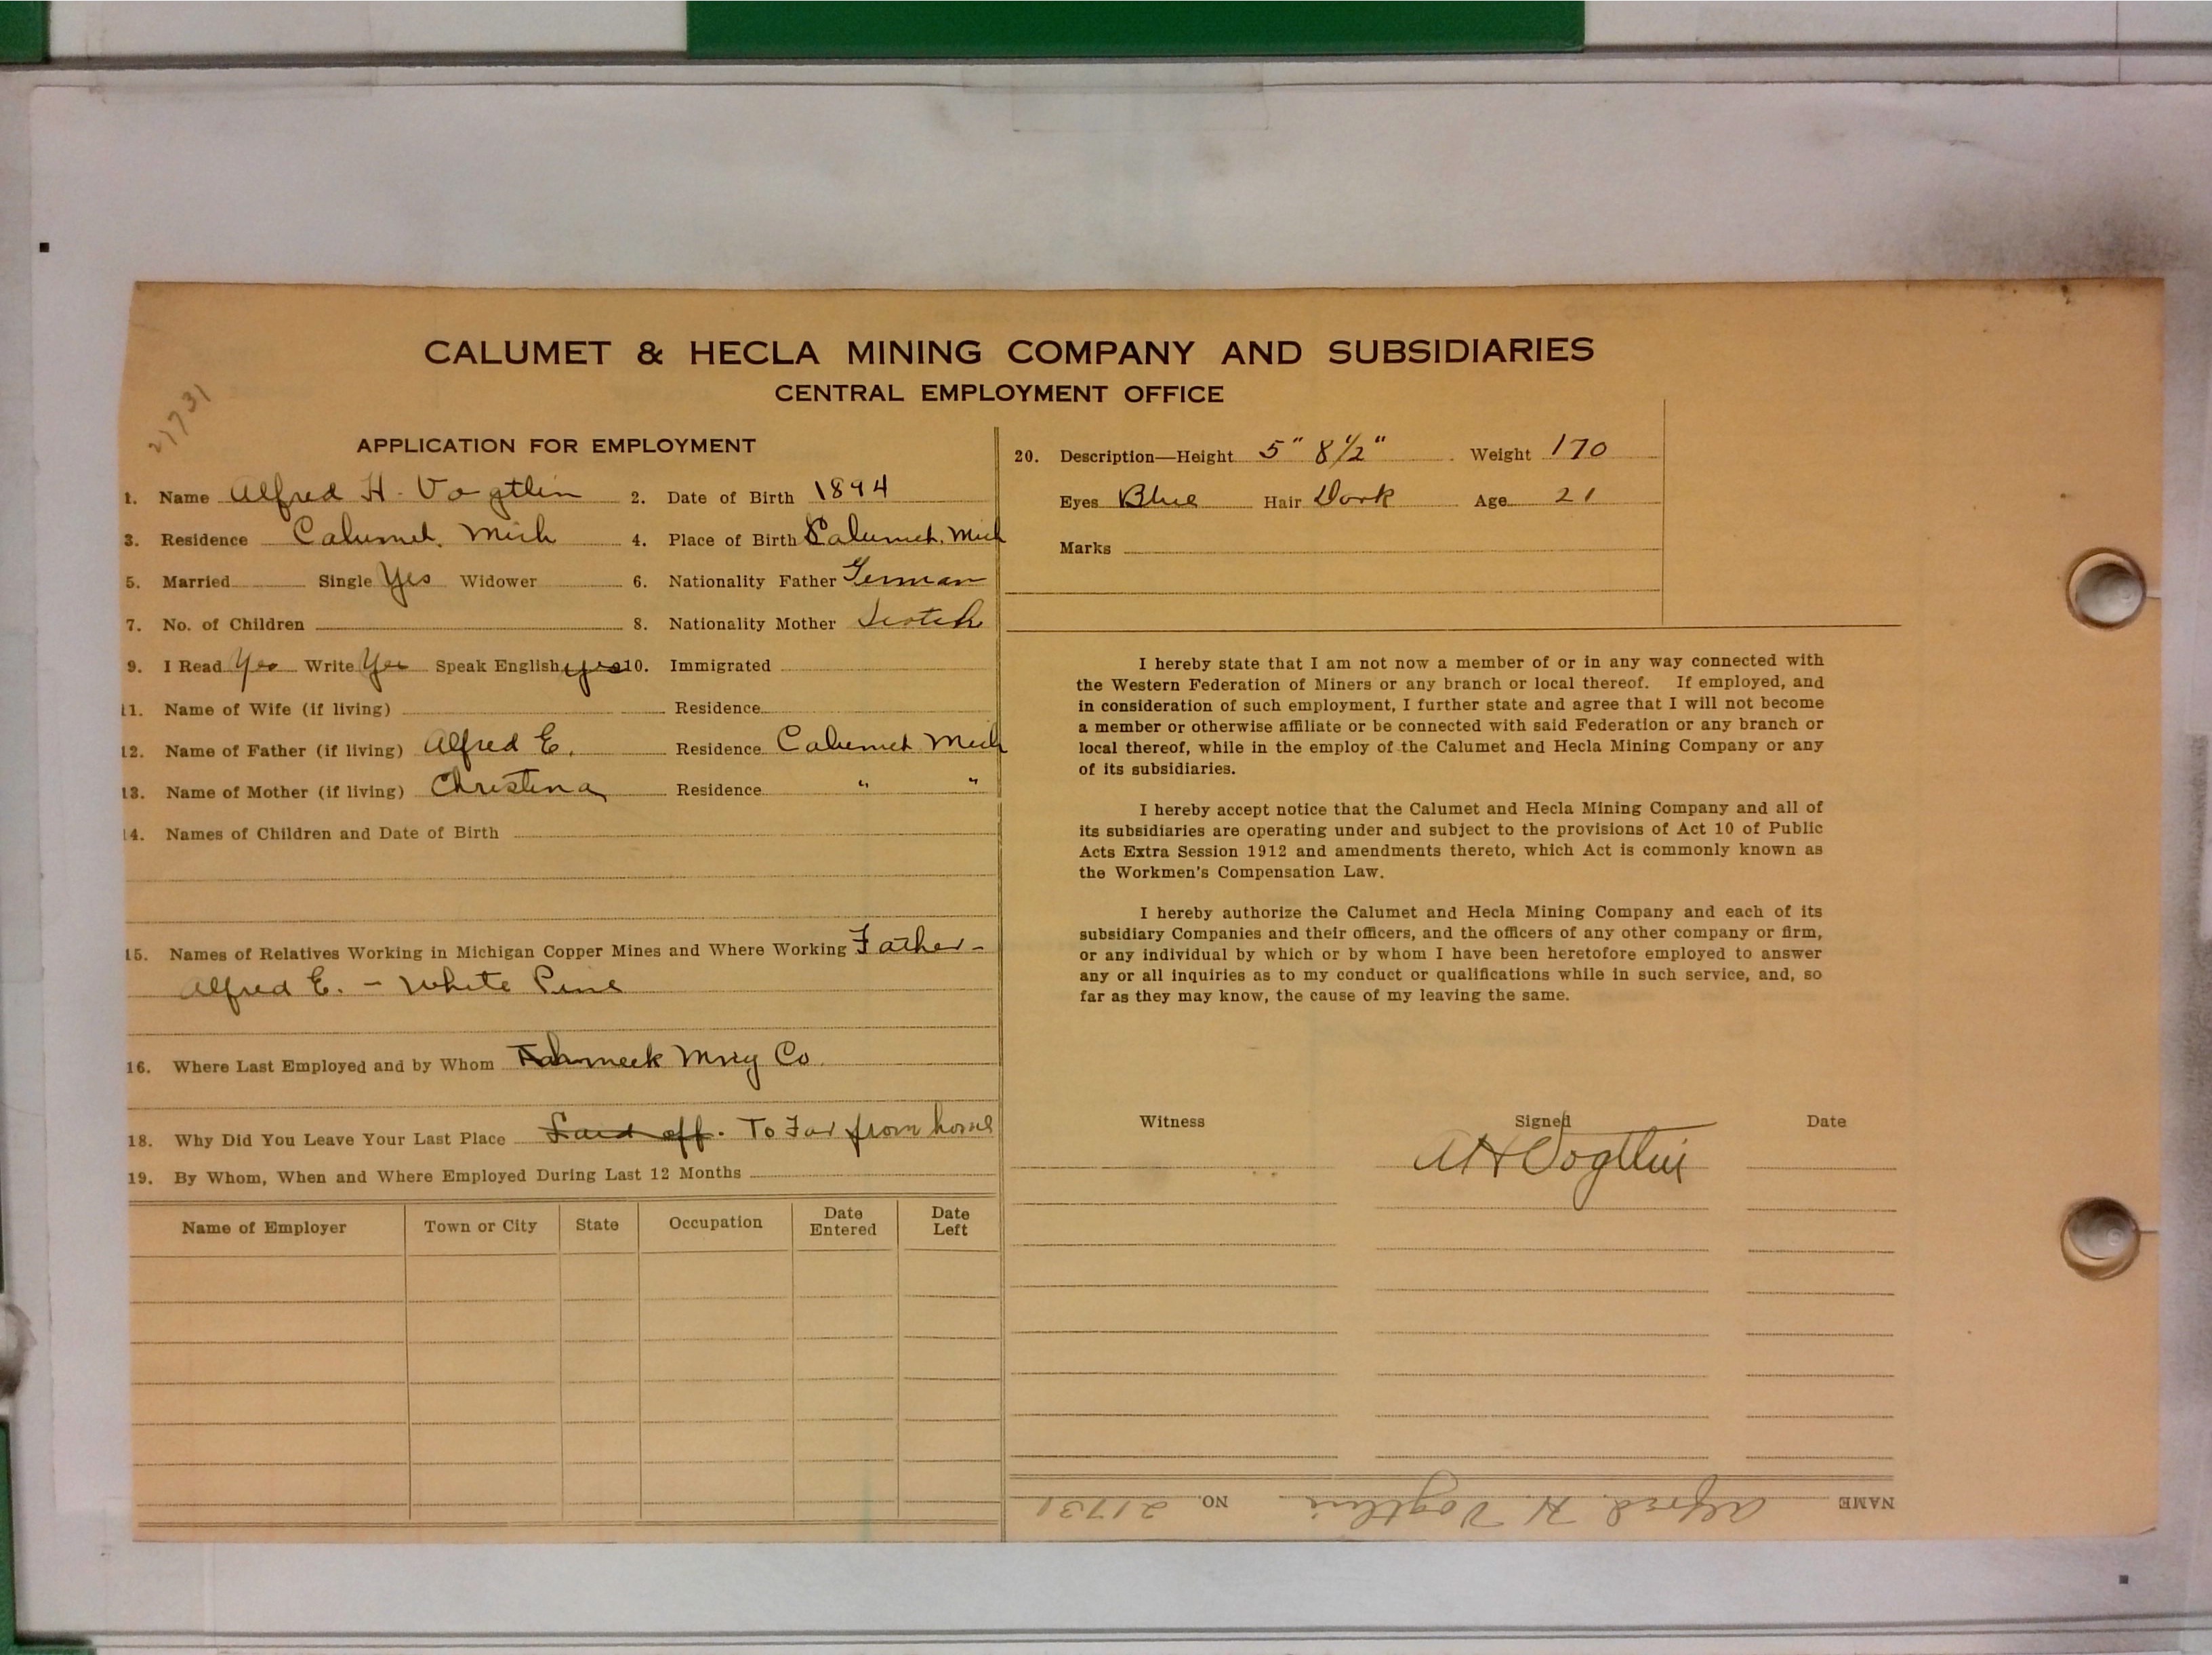 CALUMET & HECLA MINING COMPANY AND SUBSIDIARIES
CENTRAL EMPLOYMENT OFFICE
21731
APPLICATION FOR EMPLOYMENT
1. Name Alfred H. Vogtlin 2. Date of Birth 1894
3. Residence Calumet, Mich 4. Place of Birth Calumet, Mich
5. Married Single Yes Widower 6. Nationality Father German
7. No. of Children 8. Nationality Mother Scotch
9. I Read Yes Write Yes Speak English yes 10. Immigrated
11. Name of Wife (if living) Residence
12. Name of Father (if living) Alfred E. Residence Calumet Mich
13. Name of Mother (if living) Christina Residence " "
14. Names of Children and Date of Birth
15. Names of Relatives Working in Michigan Copper Mines and Where Working Father -
Alfred E. - White Pine
16. Where Last Employed and by Whom Ahmeek Mng Co.
18. Why Did You Leave Your Last Place Laid off. To Far from home
19. By Whom, When and Where Employed During Last 12 Months
Name of Employer Town or City State Occupation Date Entered Date Left
20. Description—Height 5" 8½" Weight 170
Eyes Blue Hair Dark Age 21
Marks
I hereby state that I am not now a member of or in any way connected with
the Western Federation of Miners or any branch or local thereof. If employed, and
in consideration of such employment, I further state and agree that I will not become
a member or otherwise affiliate or be connected with said Federation or any branch or
local thereof, while in the employ of the Calumet and Hecla Mining Company or any
of its subsidiaries.
I hereby accept notice that the Calumet and Hecla Mining Company and all of
its subsidiaries are operating under and subject to the provisions of Act 10 of Public
Acts Extra Session 1912 and amendments thereto, which Act is commonly known as
the Workmen's Compensation Law.
I hereby authorize the Calumet and Hecla Mining Company and each of its
subsidiary Companies and their officers, and the officers of any other company or firm,
or any individual by which or by whom I have been heretofore employed to answer
any or all inquiries as to my conduct or qualifications while in such service, and, so
far as they may know, the cause of my leaving the same.
Witness Signed Date
A H Vogtlin
NAME Alfred H. Vogtlin NO. 21731